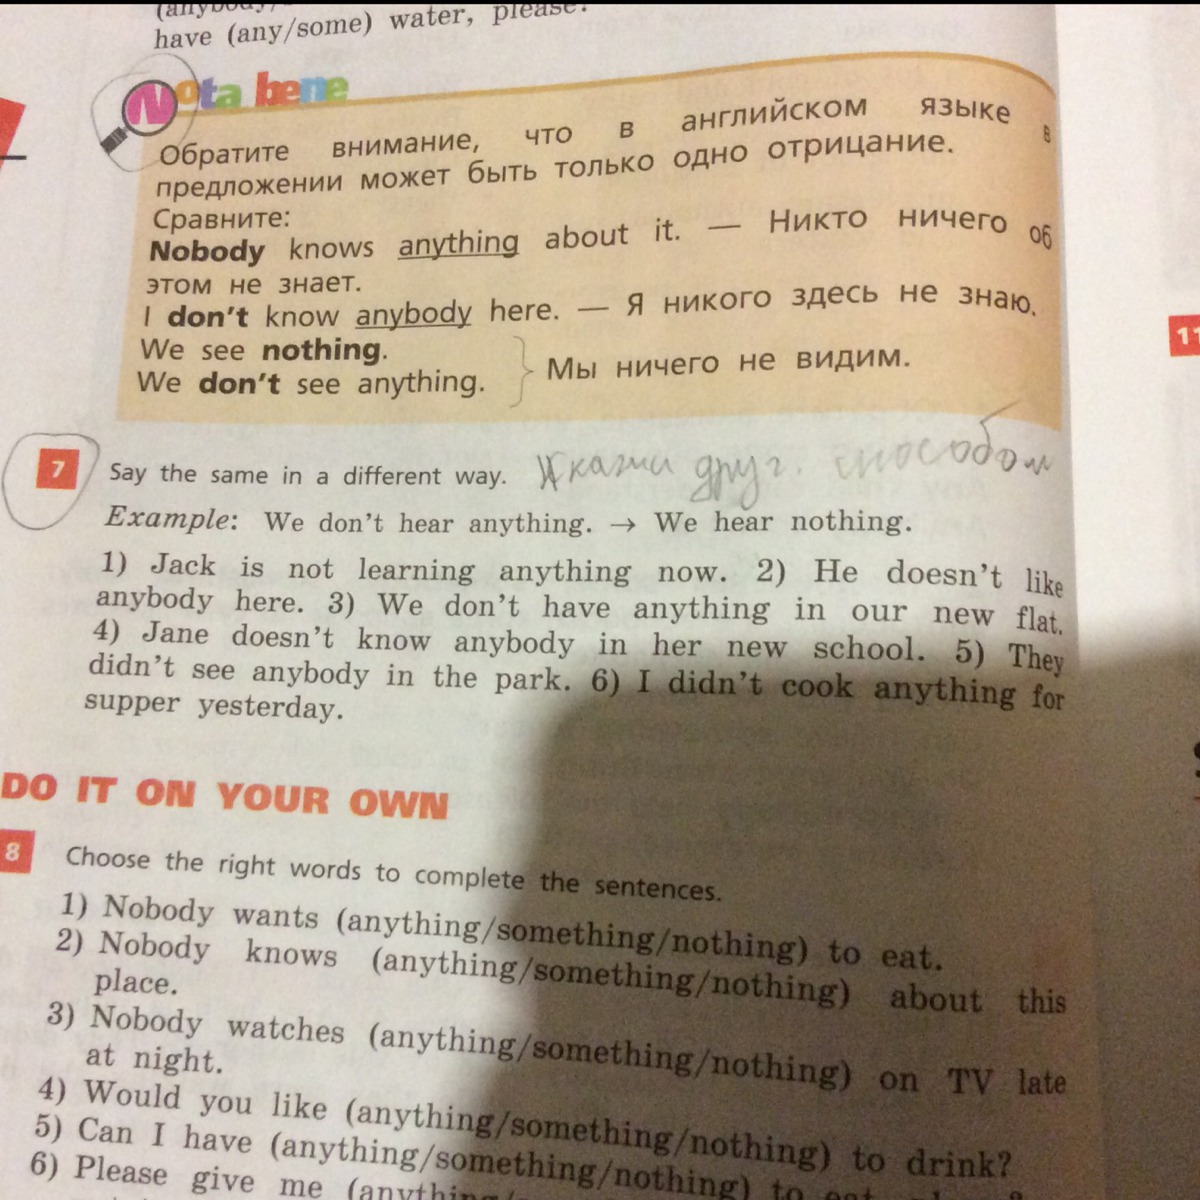 (anybody/
have (any/some) water, please?
Nota bene
Обратите внимание, что в английском языке в
предложении может быть только одно отрицание.
Сравните:
Nobody knows anything about it. — Никто ничего об
этом не знает.
I don't know anybody here. — Я никого здесь не знаю.
We see nothing.
We don't see anything.
Мы ничего не видим.
7 Say the same in a different way. Укажи друг. способом
Example: We don't hear anything. → We hear nothing.
1) Jack is not learning anything now. 2) He doesn't like
anybody here. 3) We don't have anything in our new flat.
4) Jane doesn't know anybody in her new school. 5) They
didn't see anybody in the park. 6) I didn't cook anything for
supper yesterday.
DO IT ON YOUR OWN
8 Choose the right words to complete the sentences.
1) Nobody wants (anything/something/nothing) to eat.
2) Nobody knows (anything/something/nothing) about this
place.
3) Nobody watches (anything/something/nothing) on TV late
at night.
4) Would you like (anything/something/nothing) to drink?
5) Can I have (anything/something/nothing) to eat
6) Please give me (anything/
11